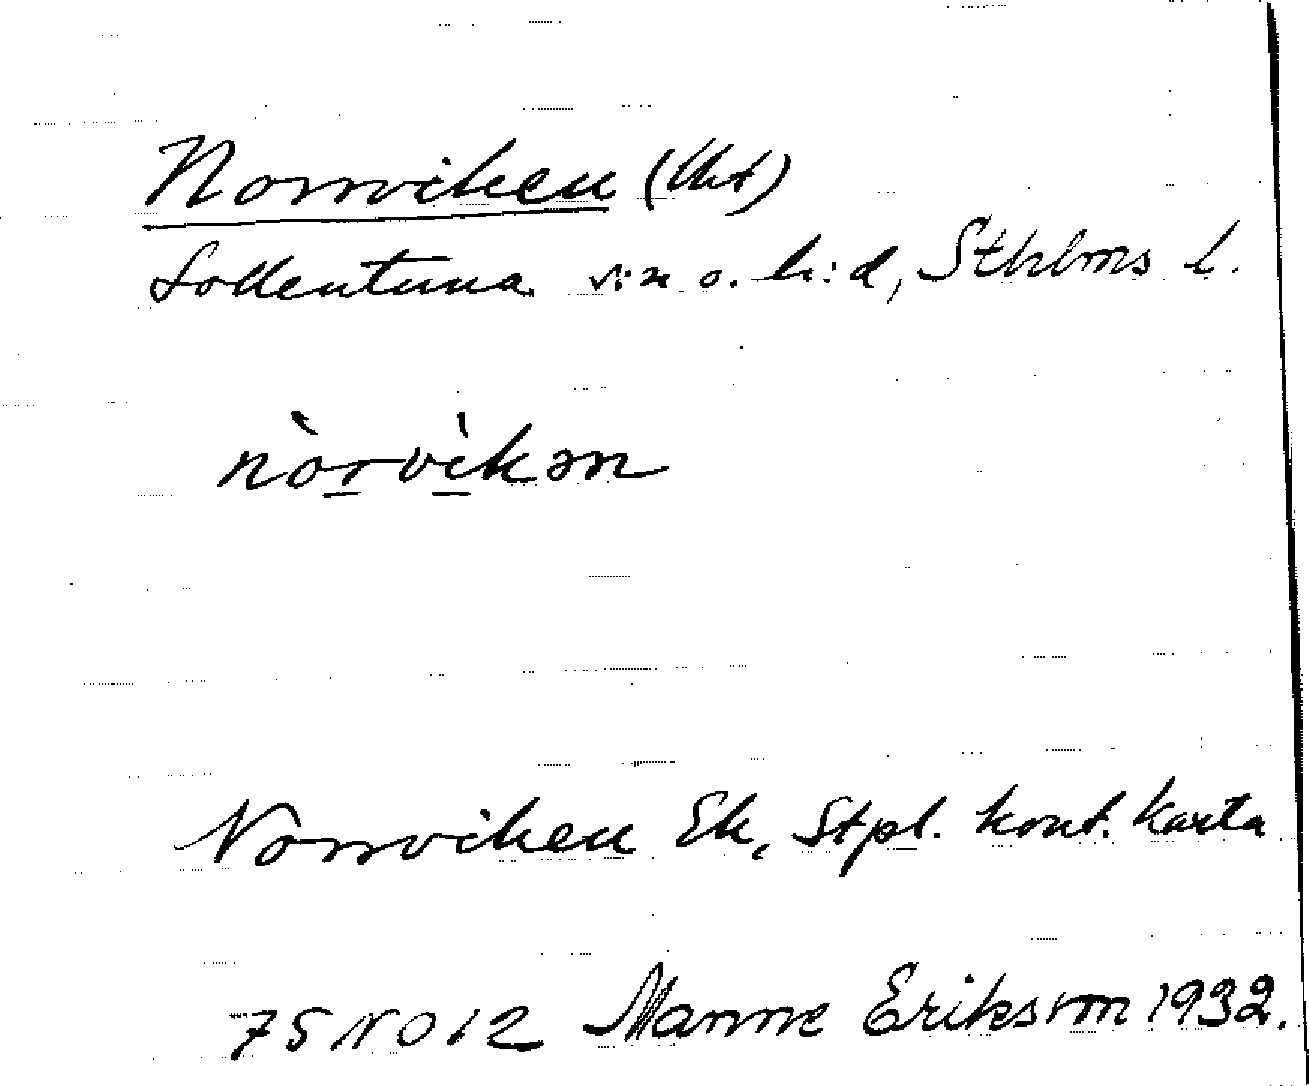 Norrviken (Uht)
Sollentuna s:n o. h:d, Sthlms l.
nòrvìkən
Norrviken Ek, Stpl. kont. karta
75 NO 12 Manne Eriksson 1932.